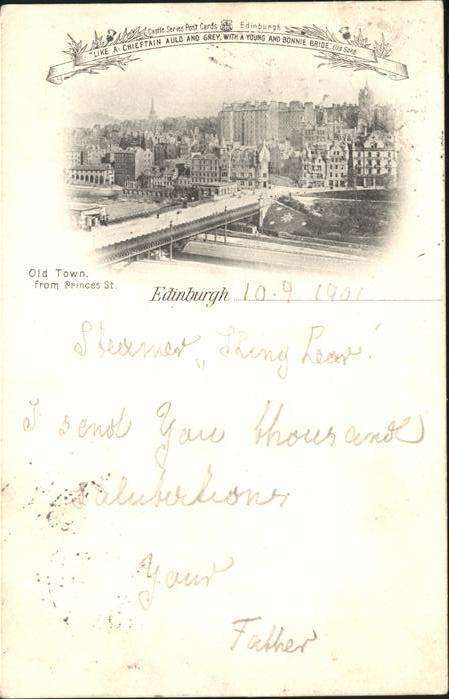 Castle Series Post Cards Edinburgh
"LIKE A CHIEFTAIN AULD AND GREY, WITH A YOUNG AND BONNIE BRIDE" Old Song
Old Town.
from Princes St.
Edinburgh 10.9 1901
Steamer „King Lear"
I send You thousand
salubertiones
Your
Father